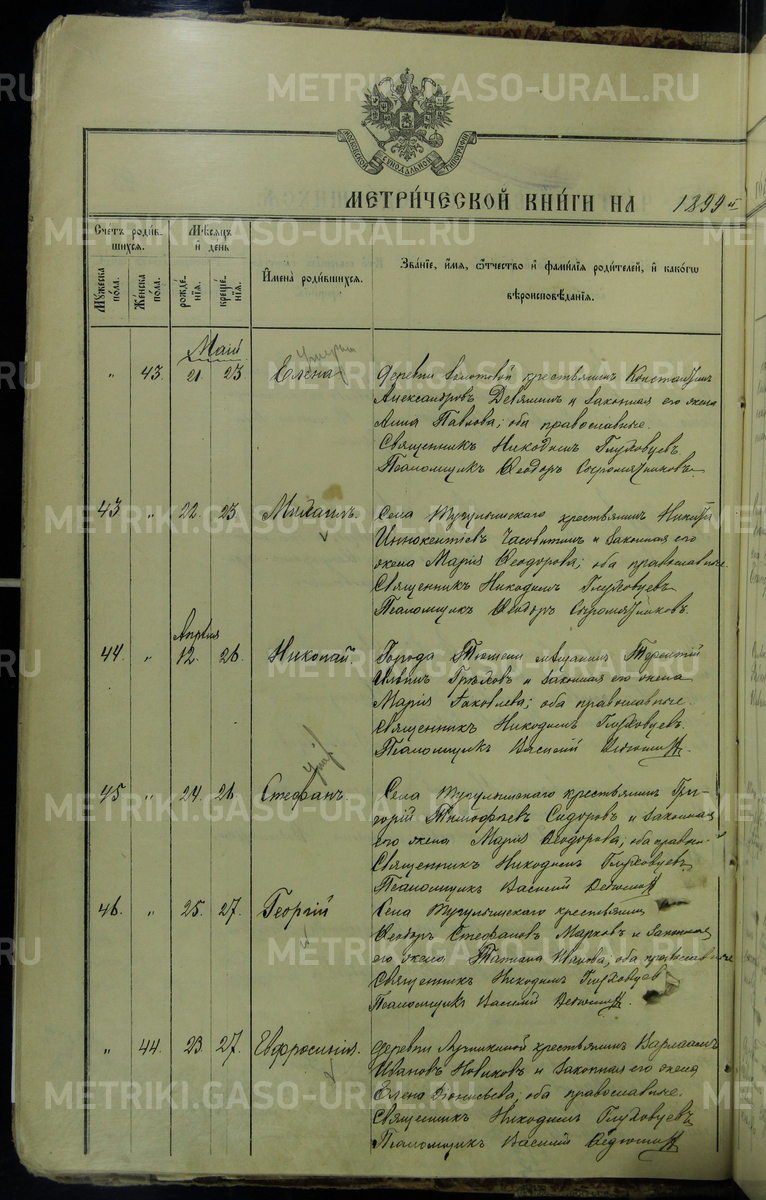 МОСКОВСКОЙ СѴНОДАЛЬНОЙ ТИПОГРАФІИ
МЕТРИ́ЧЕСКОЙ КНИ́ГИ НА 1899 г.
Сче́тъ роди́вшихся.
Мꙋ́жеска по́ла.
Же́нска по́ла.
Мѣ́сяцъ и҆ день
рожде́нїѧ.
креще́нїѧ.
И҆мена̀ роди́вшихся.
Зва́нїе, и҆́мѧ, ѻ҆́тчество и҆ фами́лїѧ роди́телей, и҆ како́гѡ
вѣроисповѣ́данїѧ.
Май
„ 43. 21. 23 Елена
умерла
Деревни крестьянинъ Константинъ
Александровъ Девяшинъ и законная его жена
Анна Павлова; оба православные.
Священникъ Никодимъ Глуховцевъ
Псаломщикъ Ѳеодоръ Сыромятниковъ
43 „ 22. 23 Михаилъ.
Села Тугулымскаго крестьянинъ Никита
Иннокентіевъ Часовитинъ и законная его
жена Марія Ѳеодорова; оба православные.
Священникъ Никодимъ Глуховцевъ
Псаломщикъ Ѳеодоръ Сыромятниковъ.
Апрѣля
44. „ 12. 26 Николай.
Города Тюмени мѣщанинъ Терентій
Ильинъ Грѣховъ и законная его жена
Марія Іаковлева; оба православные.
Священникъ Никодимъ Глуховцевъ
Псаломщикъ Василій
умер.
45 „ 24. 26 Стефанъ.
Села Тугулымскаго крестьянинъ Гри-
горій Тимофѣевъ Сидоровъ и законная
его жена Марія Ѳеодорова; оба правосл.
Священникъ Никодимъ Глуховцевъ
Псаломщикъ Василій
46. „ 25. 27. Георгій
Села Тугулымскаго крестьянинъ
Ѳеодоръ Стефановъ Марковъ и законная
его жена Татіана Иванова; оба православные
Священникъ Никодимъ Глуховцевъ
Псаломщикъ Василій
„ 44. 23. 27. Евфросинія.
Деревни Лучинкиной крестьянинъ Варлаамъ
Ивановъ Новиковъ и законная его жена
Елена Діонисьева, оба православные.
Священникъ Никодимъ Глуховцевъ
Псаломщикъ Василій
METRIKI.GASO-URAL.RU